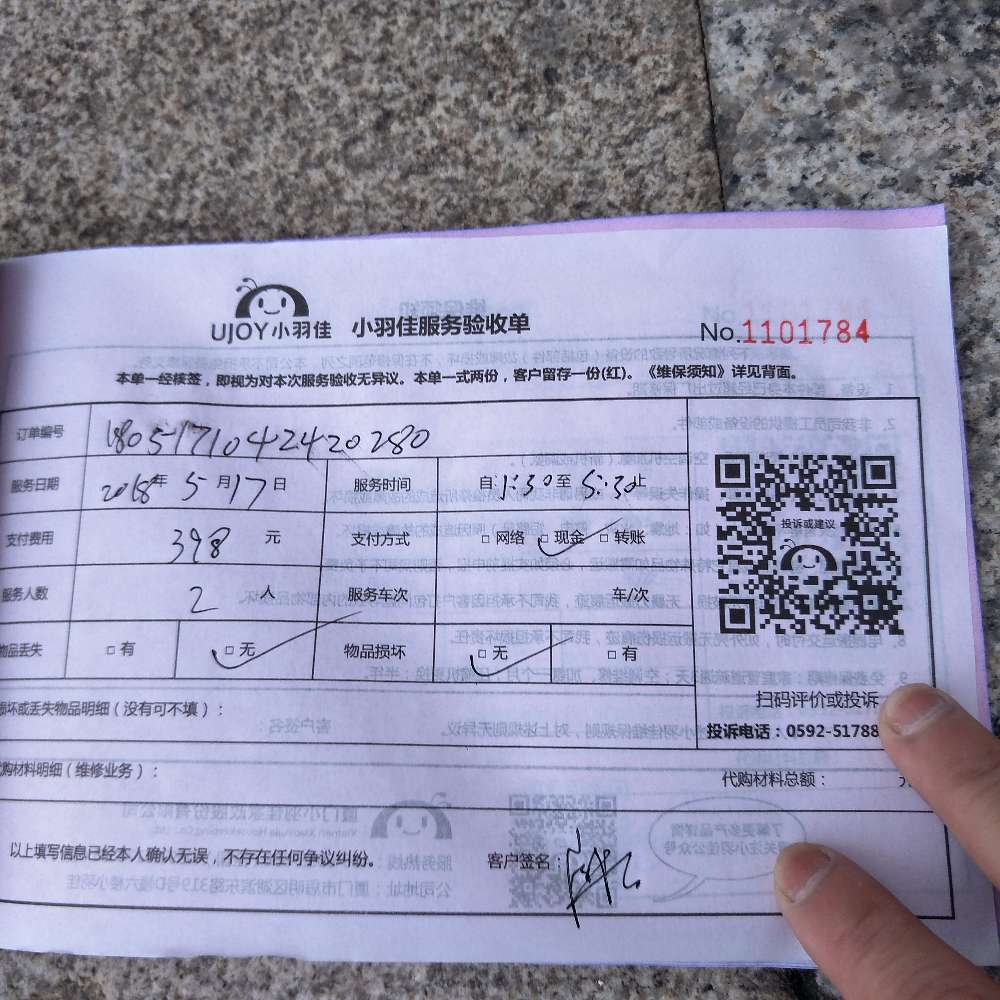 UJOY小羽佳 小羽佳服务验收单 No.1101784
本单一经核签，即视为对本次服务验收无异议。本单一式两份，客户留存一份(红)。《维保须知》详见背面。
订单编号 180517104242 0280
服务日期 2018年 5月17日 服务时间 自:1:30至5:30止
支付费用 398 元 支付方式 □网络 □现金 □转账
服务人数 2 人 服务车次 车/次
物品丢失 □有 □无 物品损坏 □无 □有
投诉或建议
扫码评价或投诉
投诉电话：0592-51788
损坏或丢失物品明细（没有可不填）：
代购材料明细（维修业务）： 代购材料总额： 元
以上填写信息已经本人确认无误，不存在任何争议纠纷。 客户签名：